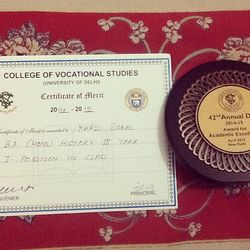 COLLEGE OF VOCATIONAL STUDIES
(UNIVERSITY OF DELHI)
Certificate of Merit
2014 - 2015
Certificate of Merit is awarded to KARUL SORAL
B.A. (HONS) HISTORY III YEAR
I POSITION IN CLASS
CONVENER
PRINCIPAL
42nd Annual D
2014-15
Award for
Academic Excelle
April 2015
New Delhi